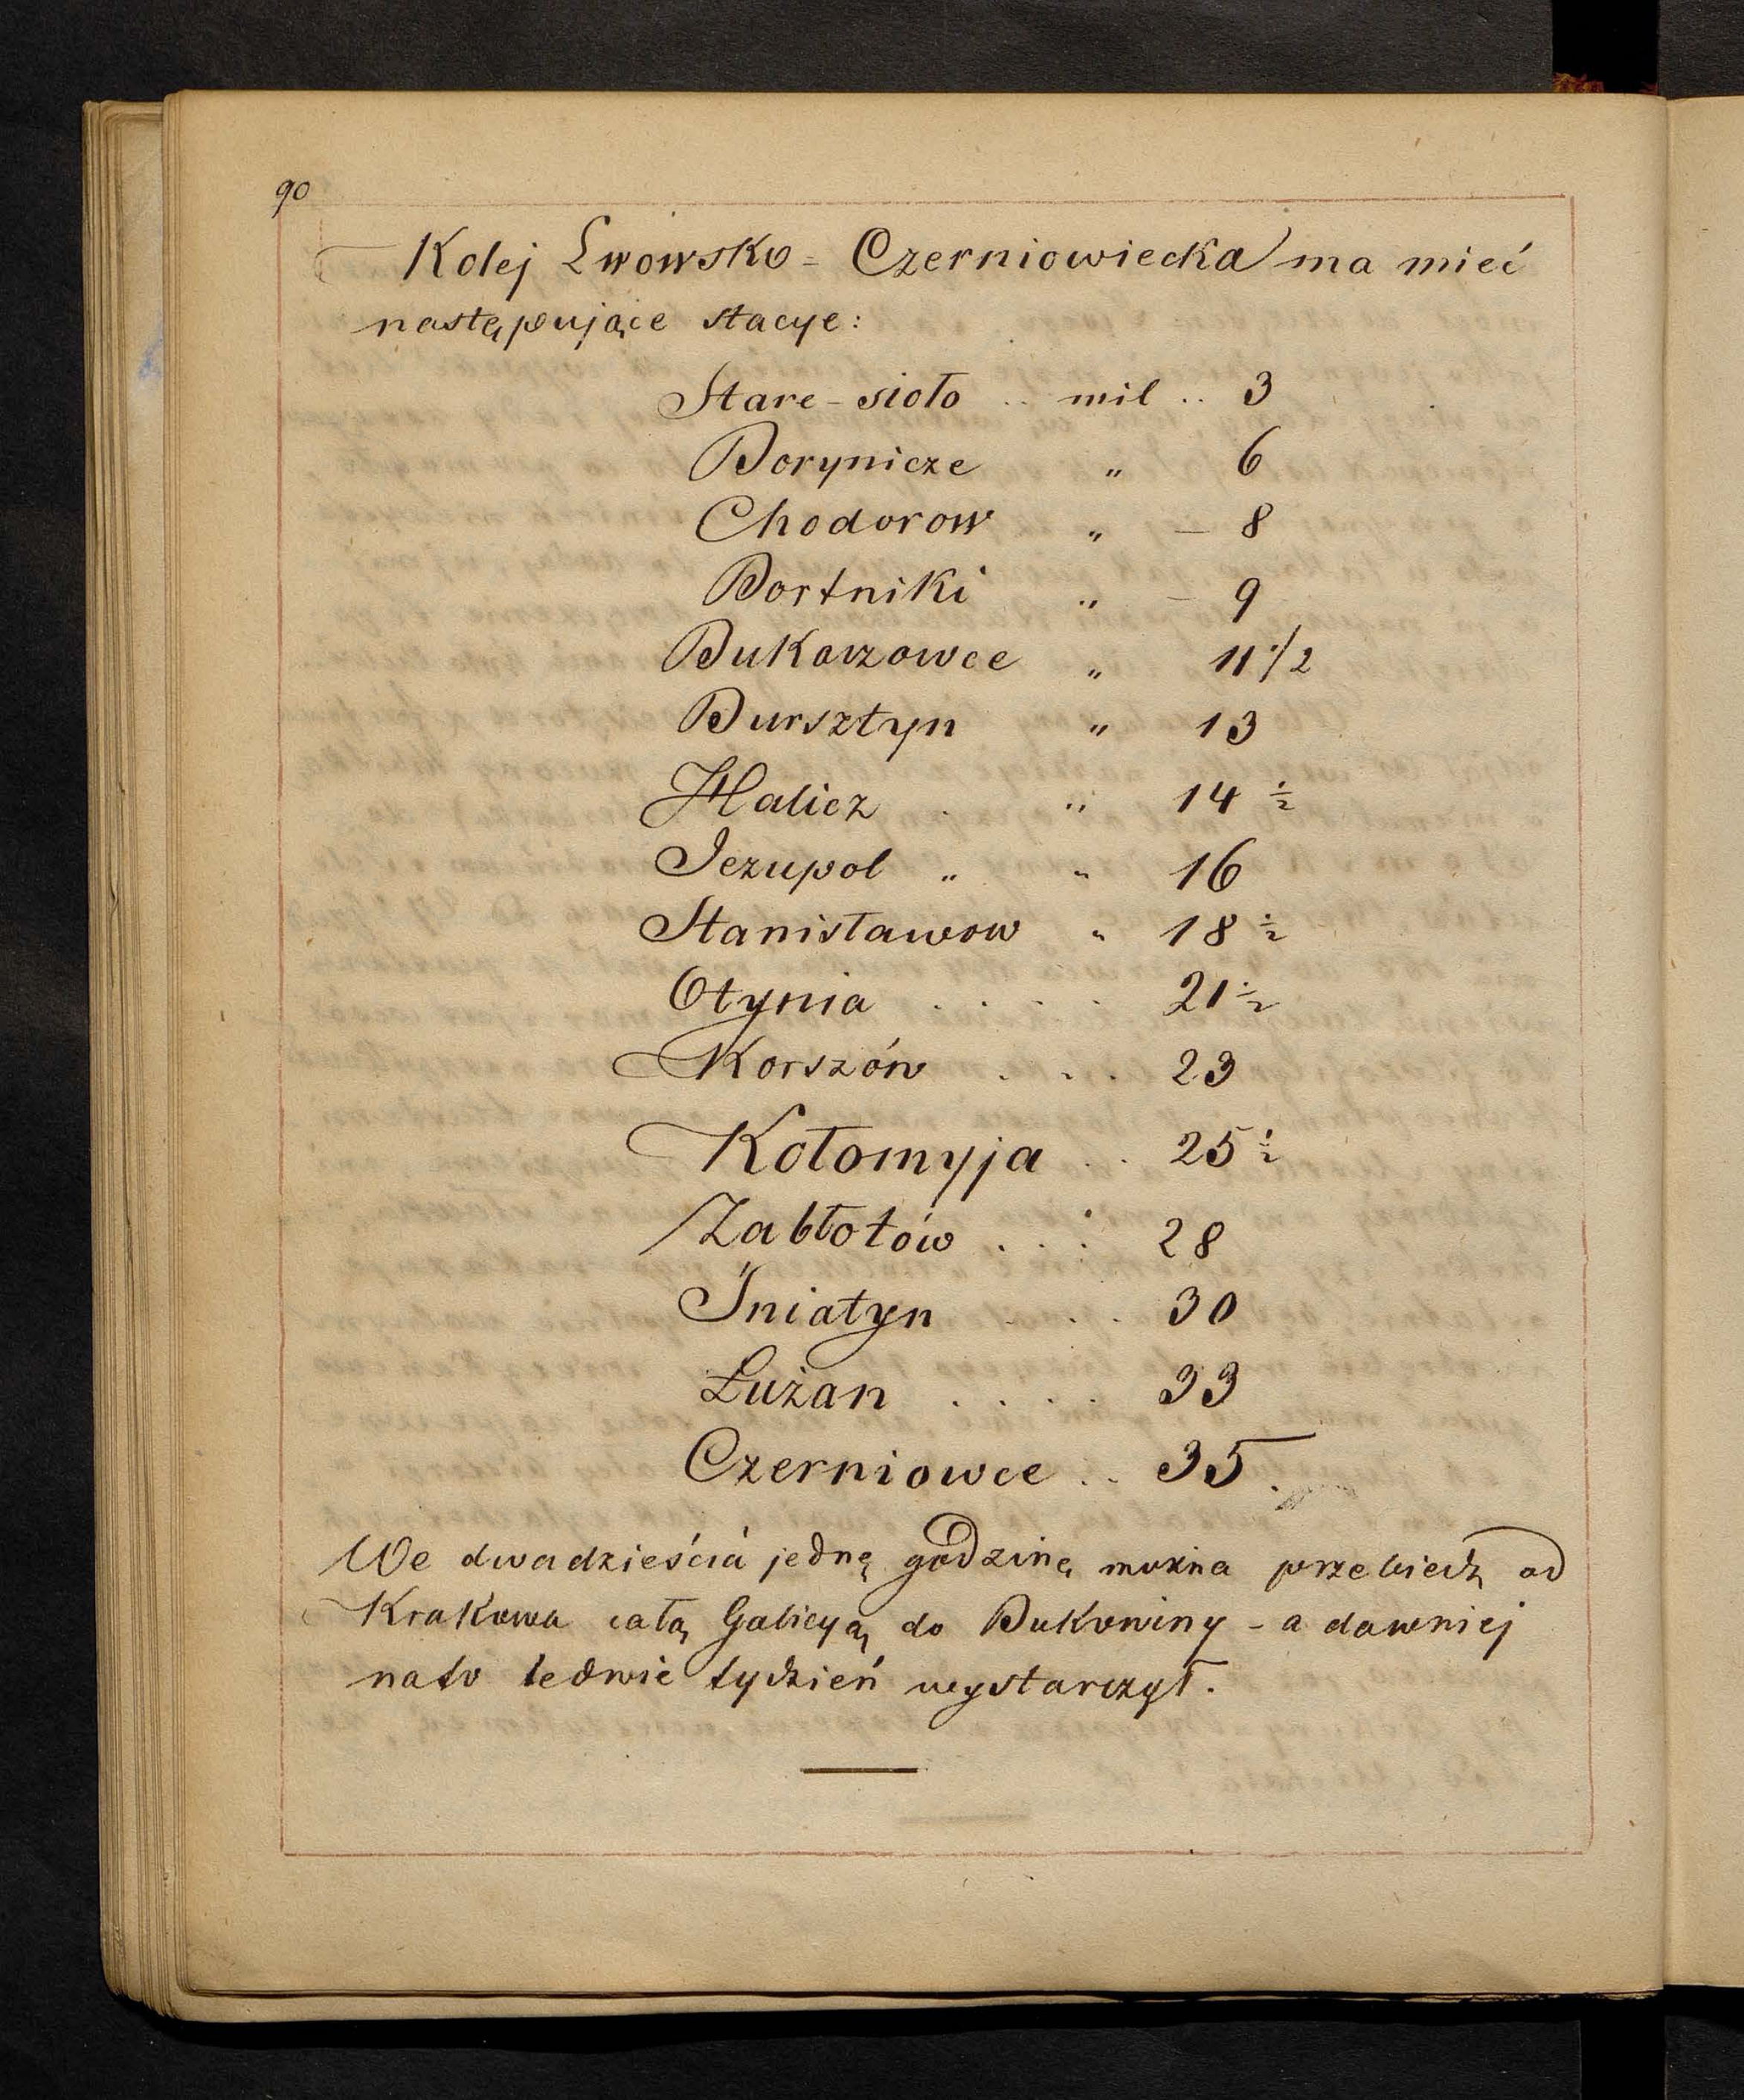 90
Kolej Lwowsko = Czerniowiecka ma mieć
następujące stacye:
Stare-sioło .. mil .. 3
Borynicze „ 6
Chodorow „ — 8
Bortniki „ — 9
Bukaczowce „ 11 1/2
Bursztyn „ 13
Halicz . „ 14 ½
Jezupol „ „ 16
Stanisławow „ 18 ½
Otynia . . . . 21 ½
Korszów . . . 23
Kołomyja . . 25 ½
Zabłotów . . . 28
Śniatyn . . . 30
Łużan . . . . 33
Czerniowce . . 35.
We dwadzieścia jedną godzinę można przebiedz od
Krakowa całą Galicyą do Bukowiny - a dawniej
nato ledwie tydzień wystarczył.